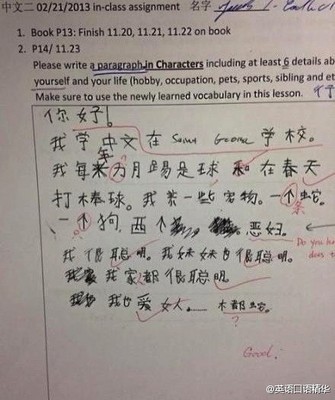 中文二 02/21/2013 in-class assignment 名字
1. Book P13: Finish 11.20, 11.21, 11.22 on book
2. P14/ 11.23
Please write a paragraph in Characters including at least 6 details ab
yourself and your life (hobby, occupation, pets, sports, sibling and et
Make sure to use the newly learned vocabulary in this lesson.
你好!
我学中文在 George 学校。
我每年 月踢是球 在春天
打棒球。我养一些宠物。一个蛇。
条
一个狗, 西个 恶妇。
Do you
does t
我很聪明。我妹妹也很聪明。
我家都很聪明。
我也爱女人。 木都蛇。
?
Good!
@英语口语精华